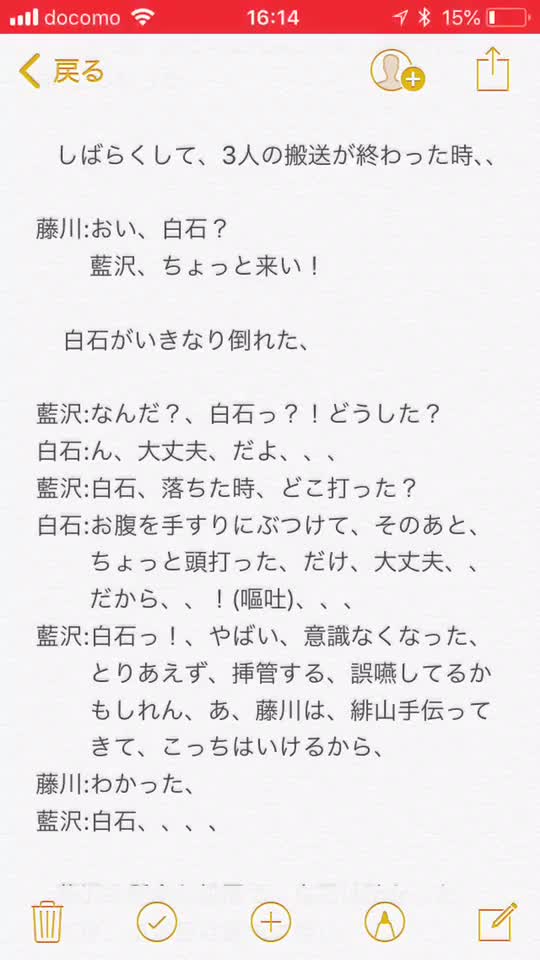 docomo 16:14 15%
戻る
しばらくして、3人の搬送が終わった時、、
藤川:おい、白石？
藍沢、ちょっと来い！
白石がいきなり倒れた、
藍沢:なんだ？、白石っ？！どうした？
白石:ん、大丈夫、だよ、、、
藍沢:白石、落ちた時、どこ打った？
白石:お腹を手すりにぶつけて、そのあと、
ちょっと頭打った、だけ、大丈夫、、
だから、、！(嘔吐)、、、
藍沢:白石っ！、やばい、意識なくなった、
とりあえず、挿管する、誤嚥してるか
もしれん、あ、藤川は、緋山手伝って
きて、こっちはいけるから、
藤川:わかった、
藍沢:白石、、、、